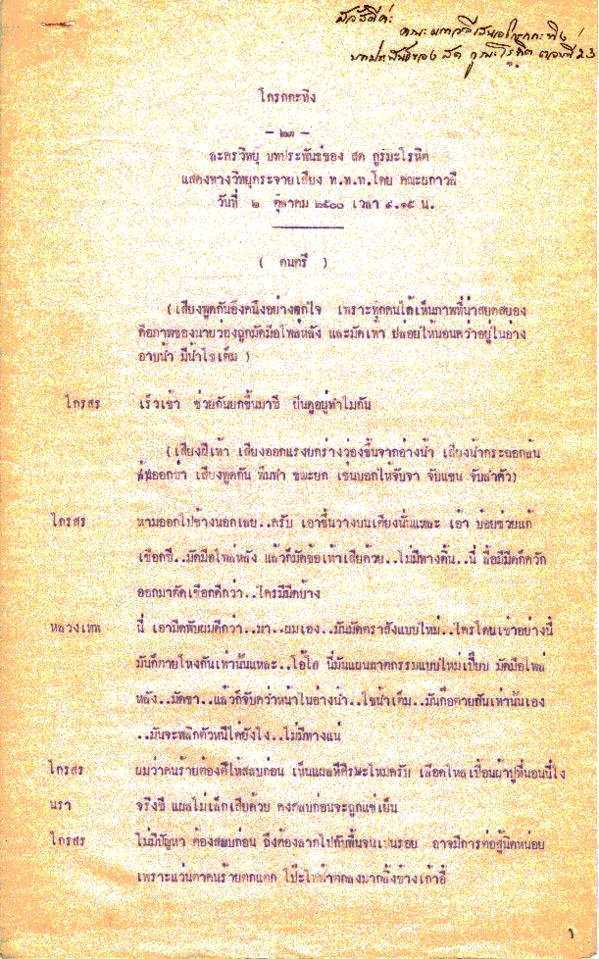 สวัสดีค่ะ
คณะผกาวลีเสนอโกรกกะทิง
บทประพันธ์ของ สด กูรมะโรหิต ตอนที่ 23
โกรกกะทิง
- ๒๓ -
ละครวิทยุ บทประพันธ์ของ สด กูรมะโรหิต
แสดงทางวิทยุกระจายเสียง ท.ท.ท.โดย คณะผกาวลี
วันที่ ๒ ตุลาคม ๒๕๐๐ เวลา ๙.๑๕ น.
( ดนตรี )
(เสียงพูดกันอึงคนึงอย่างตกใจ เพราะทุกคนได้เห็นภาพที่น่าสยดสยอง
คือภาพของนายว่องถูกมัดมือไพล่หลัง และมัดเท้า ปล่อยให้นอนคว่ำอยู่ในอ่าง
อาบน้ำ มีน้ำไขเต็ม )
ไกรสร เร็วเข้า ช่วยกันยกขึ้นมาซี ยืนดูอยู่ทำไมกัน
(เสียงฝีเท้า เสียงออกแรงยกร่างว่องขึ้นจากอ่างน้ำ เสียงน้ำกระฉอกล้น
ล้นออกซ่า เสียงพูดกัน พึมพำ ขณะยก เช่นบอกให้จับขา จับแขน จับลำตัว)
ไกรสร หามออกไปข้างนอกเลย..ครับ เอาขึ้นวางบนเตียงนั่นแหละ เอ้า บ้อยช่วยแก้
เชือกซี..มัดมือไพล่หลัง แล้วก็มัดข้อเท้าเสียด้วย..ไม่มีทางดิ้น..นี่ สื่อมีมีดก็ควัก
ออกมาตัดเชือกดีกว่า..ใครมีมีดบ้าง
หลวงเทพ นี่ เอามีดพับผมดีกว่า..มา..ผมเอง..มันมัดตราสังแบบใหม่..ใครโดนเข้าอย่างนี้
มันก็ตายโหงกันเท่านั้นแหละ..โอ้โฮ นี่มันแผนฆาตกรรมแบบใหม่เปี๊ยบ มัดมือไพล่
หลัง..มัดขา..แล้วก็จับคว่ำหน้าในอ่างน้ำ..ไขน้ำเต็ม..มันก็อตายกันเท่านั้นเอง
..มันจะพลิกตัวหนีได้ยังไง..ไม่มีทางแน่
ไกรสร ผมว่าคนร้ายต้องตีให้สลบก่อน เห็นแผลที่ศีรษะไหมครับ เลือดไหลเปื้อนผ้าปูที่นอนนี่ไง
นรา จริงซี แผลไม่เล็กเสียด้วย คงสลบก่อนจะถูกแช่เย็น
ไกรสร ไม่มีปัญหา ต้องสลบก่อน ถึงต้องลากไปกับพื้นจนเป็นรอย อาจมีการต่อสู้นิดหน่อย
เพราะแว่นตาคนร้ายตกแตก โป๊ะไฟฟ้าตกลงมากลิ้งข้างเก้าอี้
๑